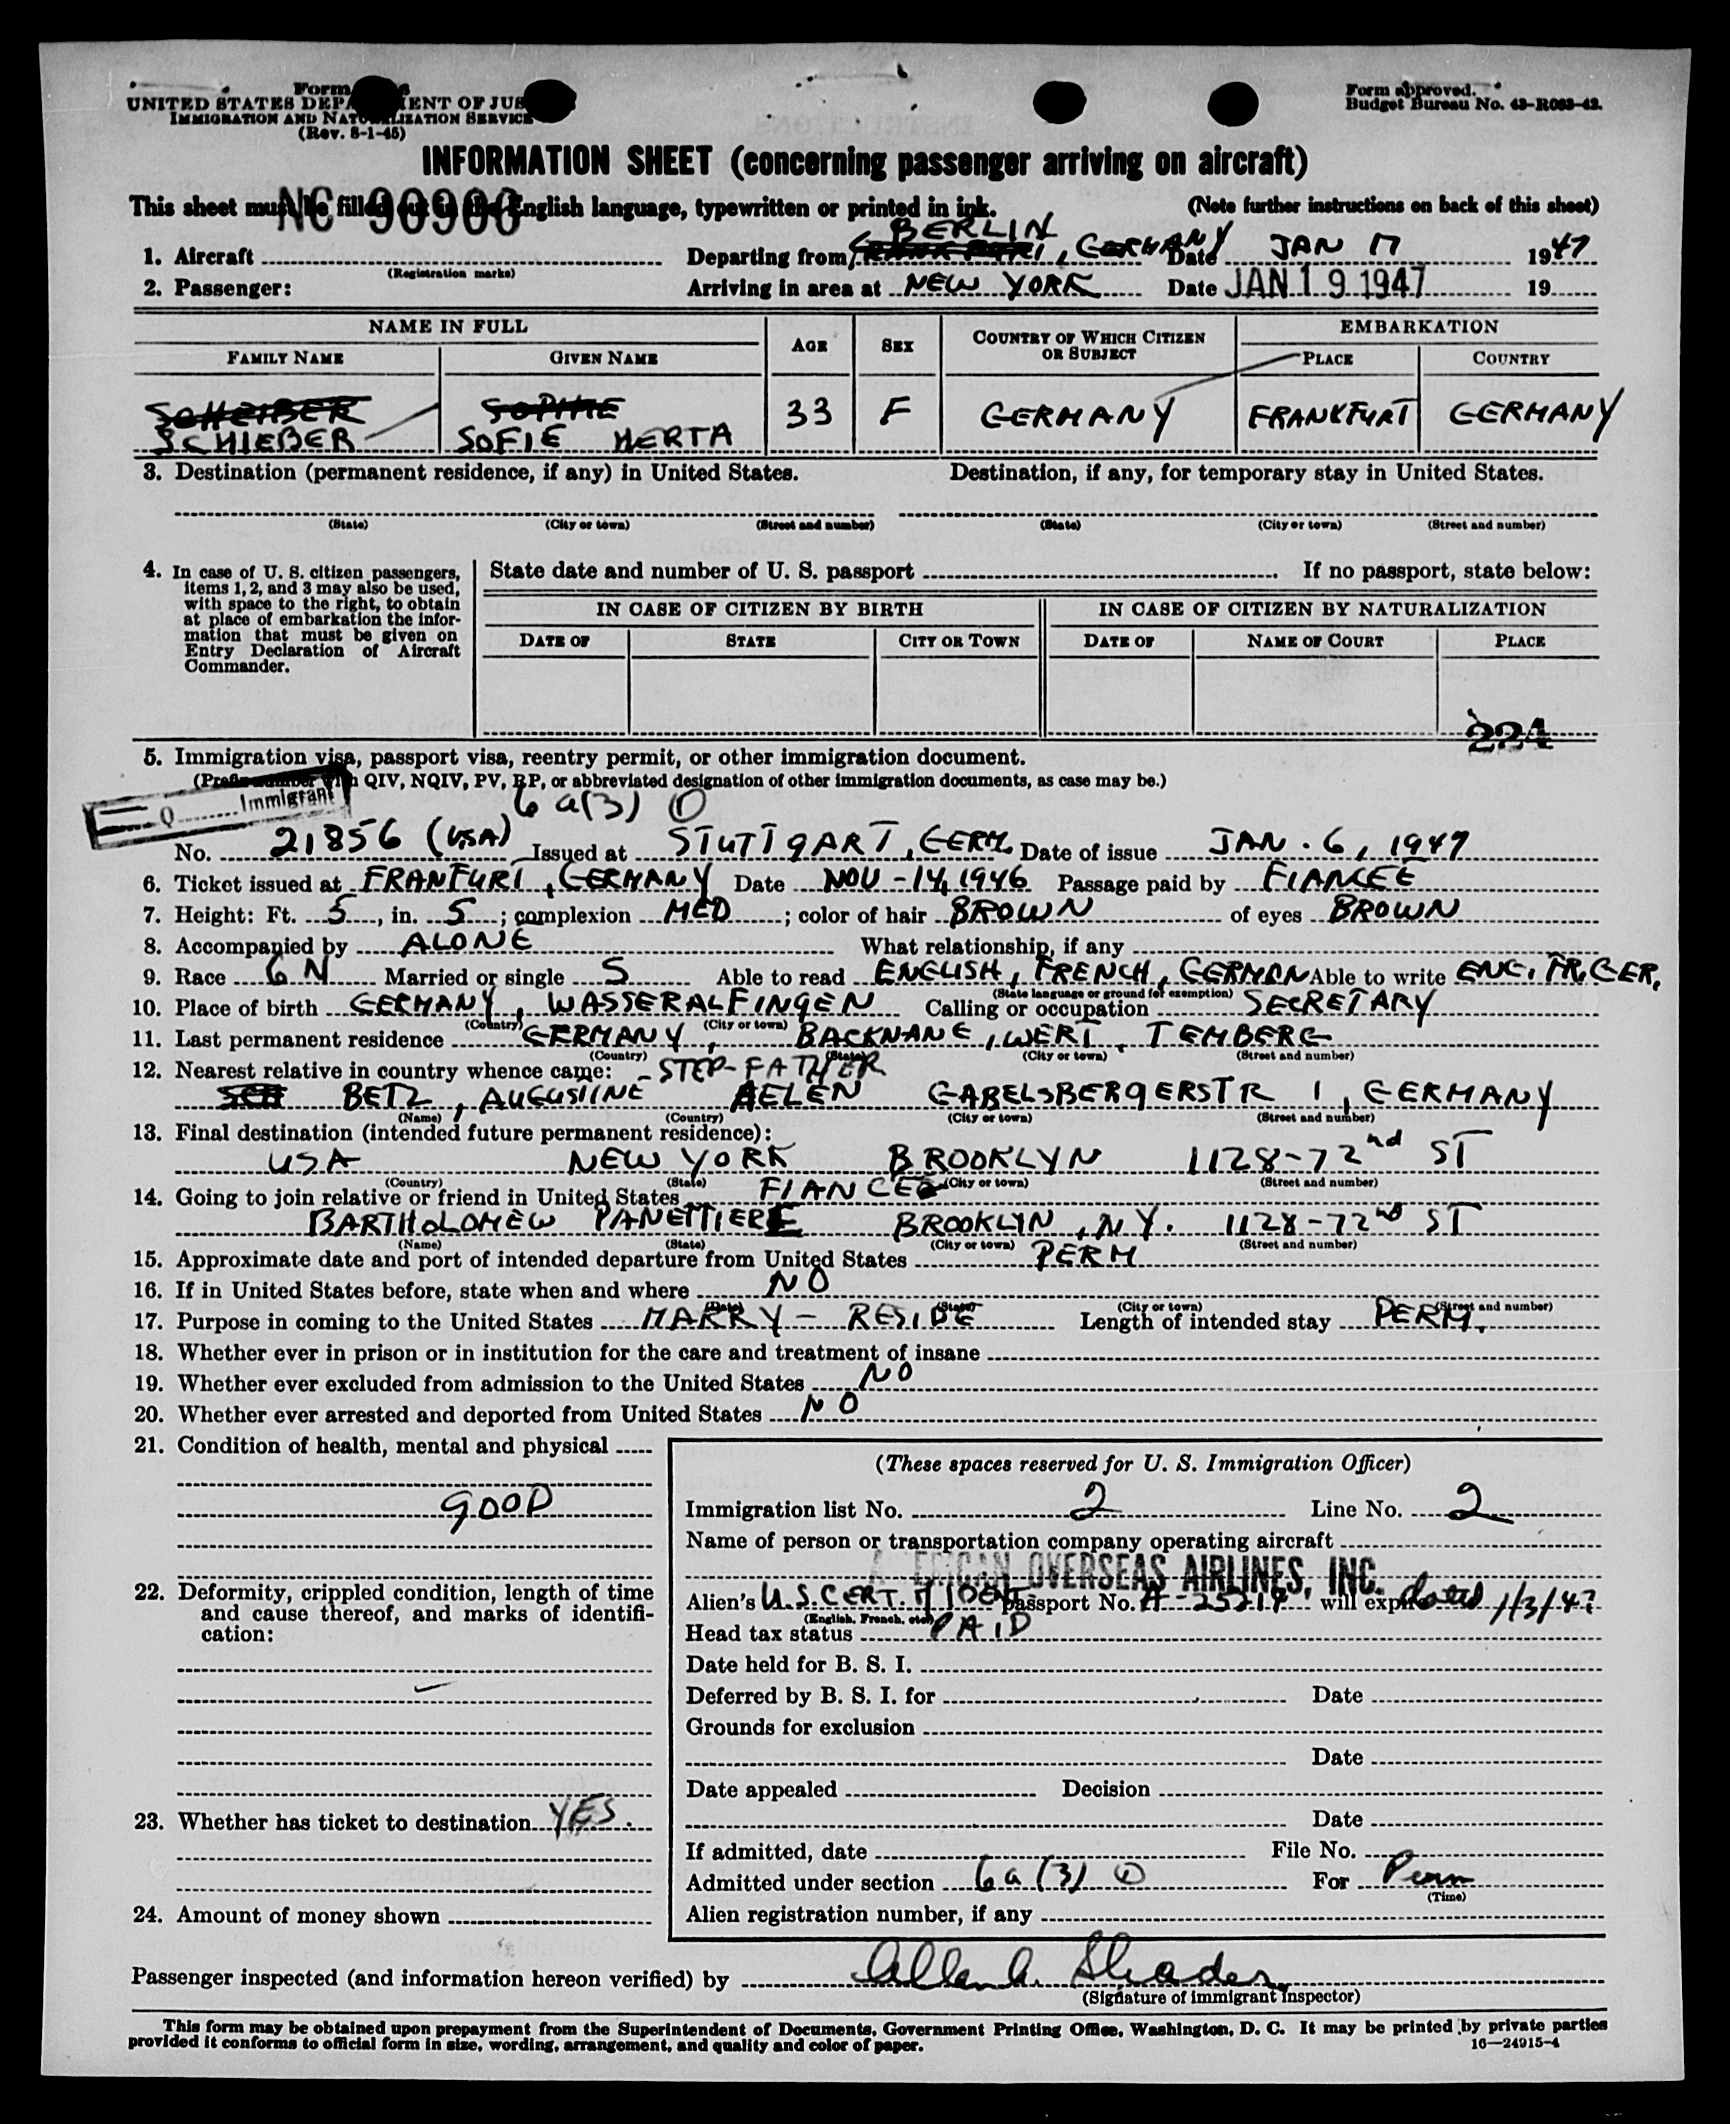 UNITED STATES DEPARTMENT OF JUS
IMMIGRATION AND NATURALIZATION SERVICE
(Rev. 8-1-45)
Form approved.
Budget Bureau No. 43-R063-42.
INFORMATION SHEET (concerning passenger arriving on aircraft)
This sheet must be filled out in the English language, typewritten or printed in ink. (Note further instructions on back of this sheet)
NC 90906
BERLIN
1. Aircraft Departing from , GERMANY Date JAN 17 1947
(Registration marks)
2. Passenger: Arriving in area at NEW YORK Date JAN 19 1947 19
NAME IN FULL AGE SEX COUNTRY OF WHICH CITIZEN OR SUBJECT EMBARKATION
FAMILY NAME GIVEN NAME PLACE COUNTRY
SCHEIBER SOPHIE 33 F GERMANY FRANKFURT GERMANY
SCHIEBER SOFIE HERTA
3. Destination (permanent residence, if any) in United States. Destination, if any, for temporary stay in United States.
(State) (City or town) (Street and number) (State) (City or town) (Street and number)
4. In case of U. S. citizen passengers, items 1, 2, and 3 may also be used, with space to the right, to obtain at place of embarkation the information that must be given on Entry Declaration of Aircraft Commander.
State date and number of U. S. passport If no passport, state below:
IN CASE OF CITIZEN BY BIRTH IN CASE OF CITIZEN BY NATURALIZATION
DATE OF STATE CITY OR TOWN DATE OF NAME OF COURT PLACE
224
5. Immigration visa, passport visa, reentry permit, or other immigration document.
(Prefix number with QIV, NQIV, PV, RP, or abbreviated designation of other immigration documents, as case may be.)
Q Immigrant
6 a(3) ①
No. 21856 (USA) Issued at STUTTGART, GERM. Date of issue JAN. 6, 1947
6. Ticket issued at FRANFURT, GERMANY Date NOV-14, 1946 Passage paid by FIANCEE
7. Height: Ft. 5, in. 5; complexion MED; color of hair BROWN of eyes BROWN
8. Accompanied by ALONE What relationship, if any
9. Race GN Married or single S Able to read ENGLISH, FRENCH, GERMAN Able to write ENG. FR. GER.
(State language or ground for exemption)
10. Place of birth GERMANY, WASSERALFINGEN Calling or occupation SECRETARY
(Country) (City or town)
11. Last permanent residence GERMANY, BACKNANE, WERT. TEMBERG
(Country) (State) (City or town) (Street and number)
12. Nearest relative in country whence came: - STEP-FATHER
BETZ, AUGUSTINE AELEN GABELSBERGERSTR 1, GERMANY
(Name) (Country) (City or town) (Street and number)
13. Final destination (intended future permanent residence):
USA NEW YORK BROOKLYN 1128-72nd ST
(Country) (State) (City or town) (Street and number)
14. Going to join relative or friend in United States FIANCEE
BARTHOLOMEW PANETTIERE BROOKLYN, N.Y. 1128-72nd ST
(Name) (State) (City or town) (Street and number)
15. Approximate date and port of intended departure from United States PERM
16. If in United States before, state when and where NO
(Date) (State) (City or town) (Street and number)
17. Purpose in coming to the United States MARRY - RESIDE Length of intended stay PERM.
18. Whether ever in prison or in institution for the care and treatment of insane
19. Whether ever excluded from admission to the United States NO
20. Whether ever arrested and deported from United States NO
21. Condition of health, mental and physical
GOOD
22. Deformity, crippled condition, length of time and cause thereof, and marks of identification:
23. Whether has ticket to destination YES.
24. Amount of money shown
(These spaces reserved for U. S. Immigration Officer)
Immigration list No. 2 Line No. 2
Name of person or transportation company operating aircraft
AMERICAN OVERSEAS AIRLINES, INC.
Alien's U.S. CERT. of IDENT. passport No. A-25214 will expire dated 1/3/47
(English, French, etc.)
Head tax status PAID
Date held for B. S. I.
Deferred by B. S. I. for Date
Grounds for exclusion
Date
Date appealed Decision
Date
If admitted, date File No.
Admitted under section 6a(3) ① For Perm
(Time)
Alien registration number, if any
Passenger inspected (and information hereon verified) by Allen A. Shader
(Signature of immigrant inspector)
This form may be obtained upon prepayment from the Superintendent of Documents, Government Printing Office, Washington, D. C. It may be printed by private parties
provided it conforms to official form in size, wording, arrangement, and quality and color of paper. 16—24915-4